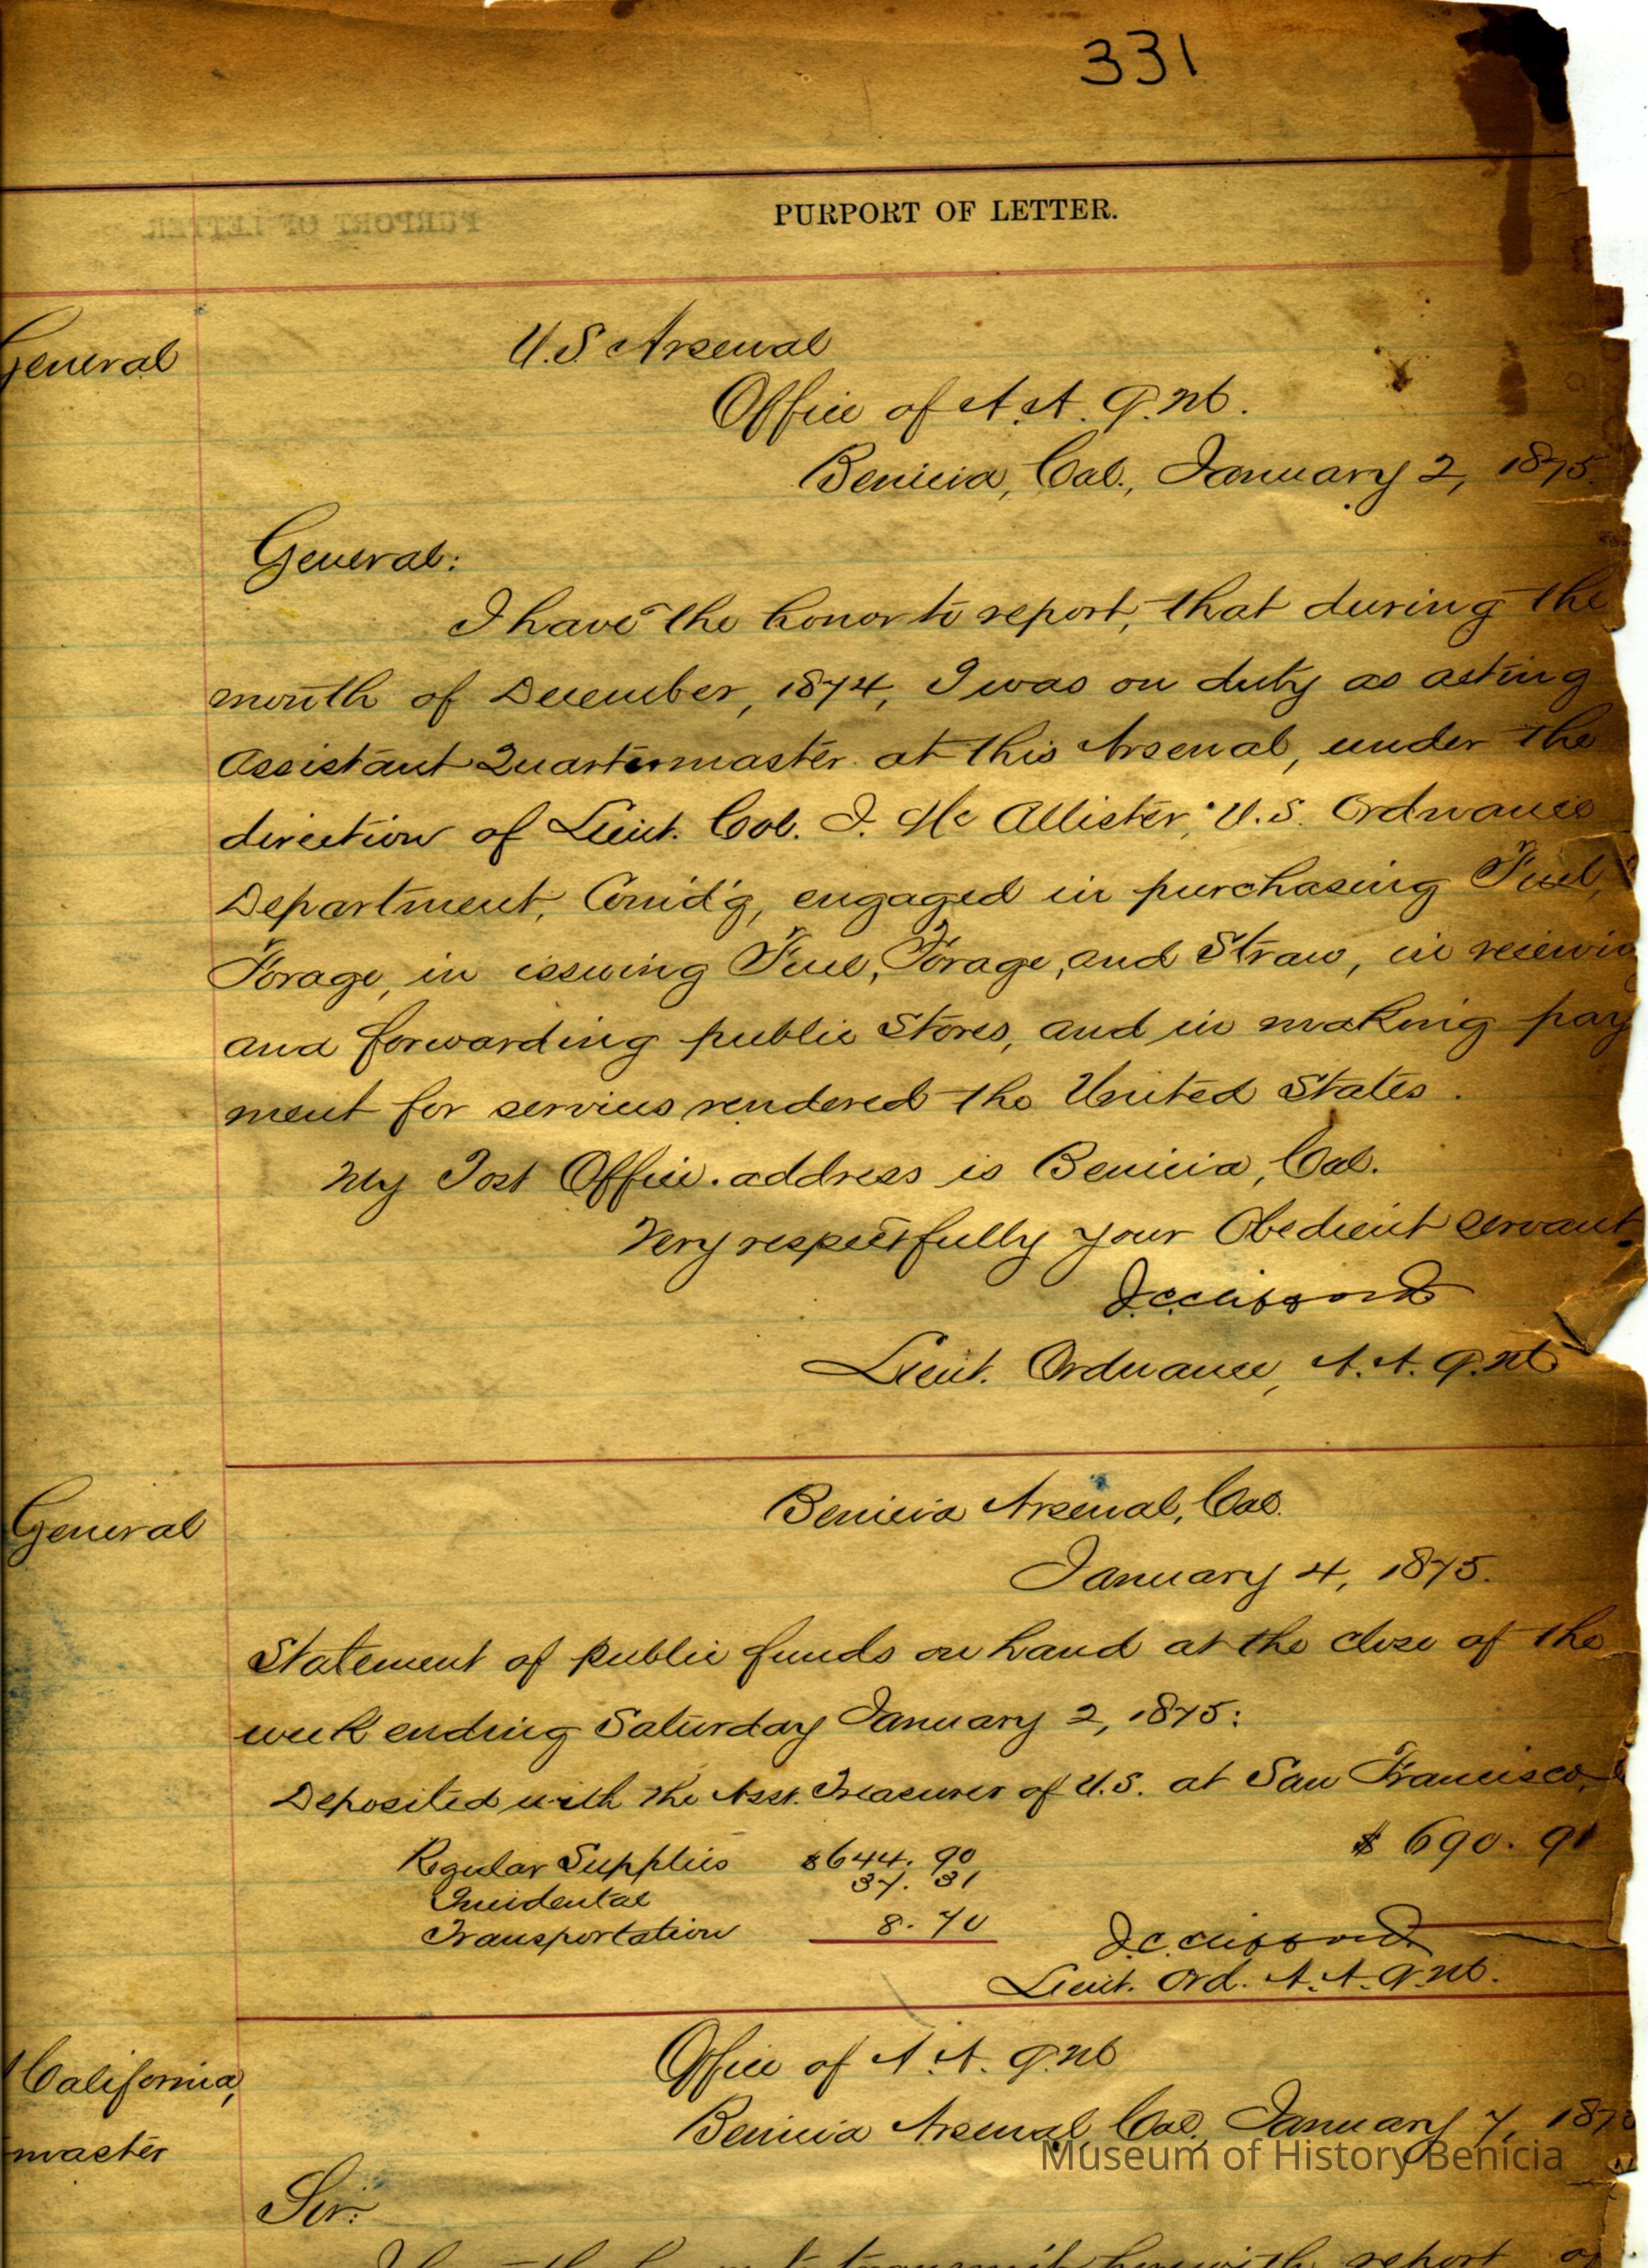 331
PURPORT OF LETTER.
General
U.S. Arsenal
Office of A. A. Q. M.
Benicia, Cal., January 2, 1875.
General:
I have the honor to report, that during the
month of December, 1874, I was on duty as acting
Assistant Quartermaster at this Arsenal, under the
direction of Lieut. Col. J. Mc Allister, U.S. Ordnance
Department, Comd'g, engaged in purchasing Fuel,
Forage, in issuing Fuel, Forage, and Straw, in receivin
and forwarding public Stores, and in making pay
ment for services rendered the United States.
My Post Office address is Benicia, Cal.
Very respectfully your Obedient servant.
J.C. Clifford
Lieut. Ordnance, A. A. Q. M.
General
Benicia Arsenal, Cal.
January 4, 1875.
Statement of public funds on hand at the close of the
week ending Saturday January 2, 1875:
Deposited with the Asst. Treasurer of U.S. at San Francisco,
$ 690. 91
Regular Supplies $644. 90
Incidental 37. 31
Transportation 8. 70
J.C. Clifford
Lieut. Ord. A. A. Q. M.
California,
master
Office of A. A. Q. M.
Benicia Arsenal, Cal., January 7, 187
Sir:
transmit herewith report of
Museum of History Benicia